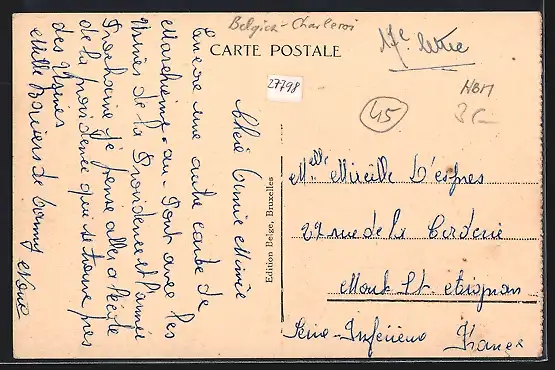 Belgica - Charleroi
CARTE POSTALE
17e lettre
27798
45
HBM
Chère Amie Mimie
Encore une autre carte de
Marchienne-au-Pont avec les
Usines de la Providence et l'année
Prochaine je pense aller à l'école
de la providence qui se trouve près
des Usines
Mille Baisers de
Edition Belge, Bruxelles
Melle Mireille D'espres
27 rue de la Corderie
Mont St. Aignan
Seine-Inférieure France